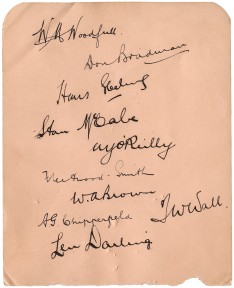 W M Woodfull.
Don Bradman
Hans Ebeling
Stan McCabe
W J O'Reilly
Fleetwood-Smith
W. A. Brown
A G Chipperfield
T W Wall.
Len Darling